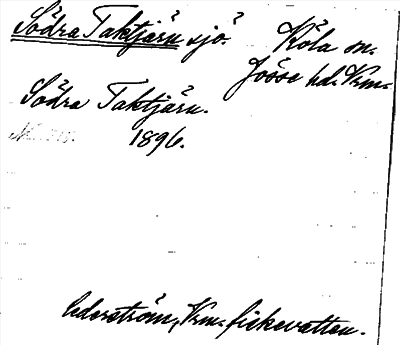 Södra Taktjärn sjö. Köla sn.
Jösse hd. Vrm.
Södra Taktjärn.
1896.
Cederström, Vrm. fiskevatten.